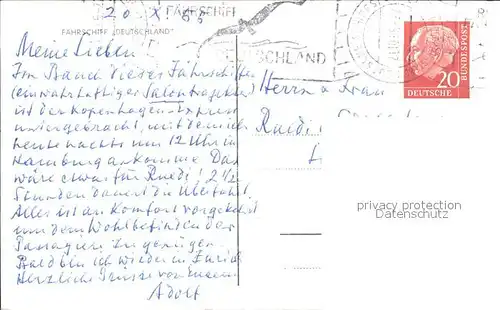 20. X. 55
FÄHRSCHIFF
FÄHRSCHIFF „DEUTSCHLAND"
SCHLAND
20
DEUTSCHE
BUNDESPOST
Meine Lieben.
Im Bauch dieses Fährschiffes
(ein wahrhaftiger
ist der Kopenhagen-Express
untergebracht, mit dem ich
heute nachts um 12 Uhr in
Hamburg ankomme. Das
wäre etwas für Ruedi! 2 ½
Stunden dauert die Überfahrt.
Alles ist an Komfort vorgekehrt
um dem Wohlbefinden der
Passagiere zu genügen.
Bald bin ich wieder in Zürich
Herzliche Grüsse von Eurem
Adolf
Herrn & Frau
Ruedi
privacy protection
Datenschutz